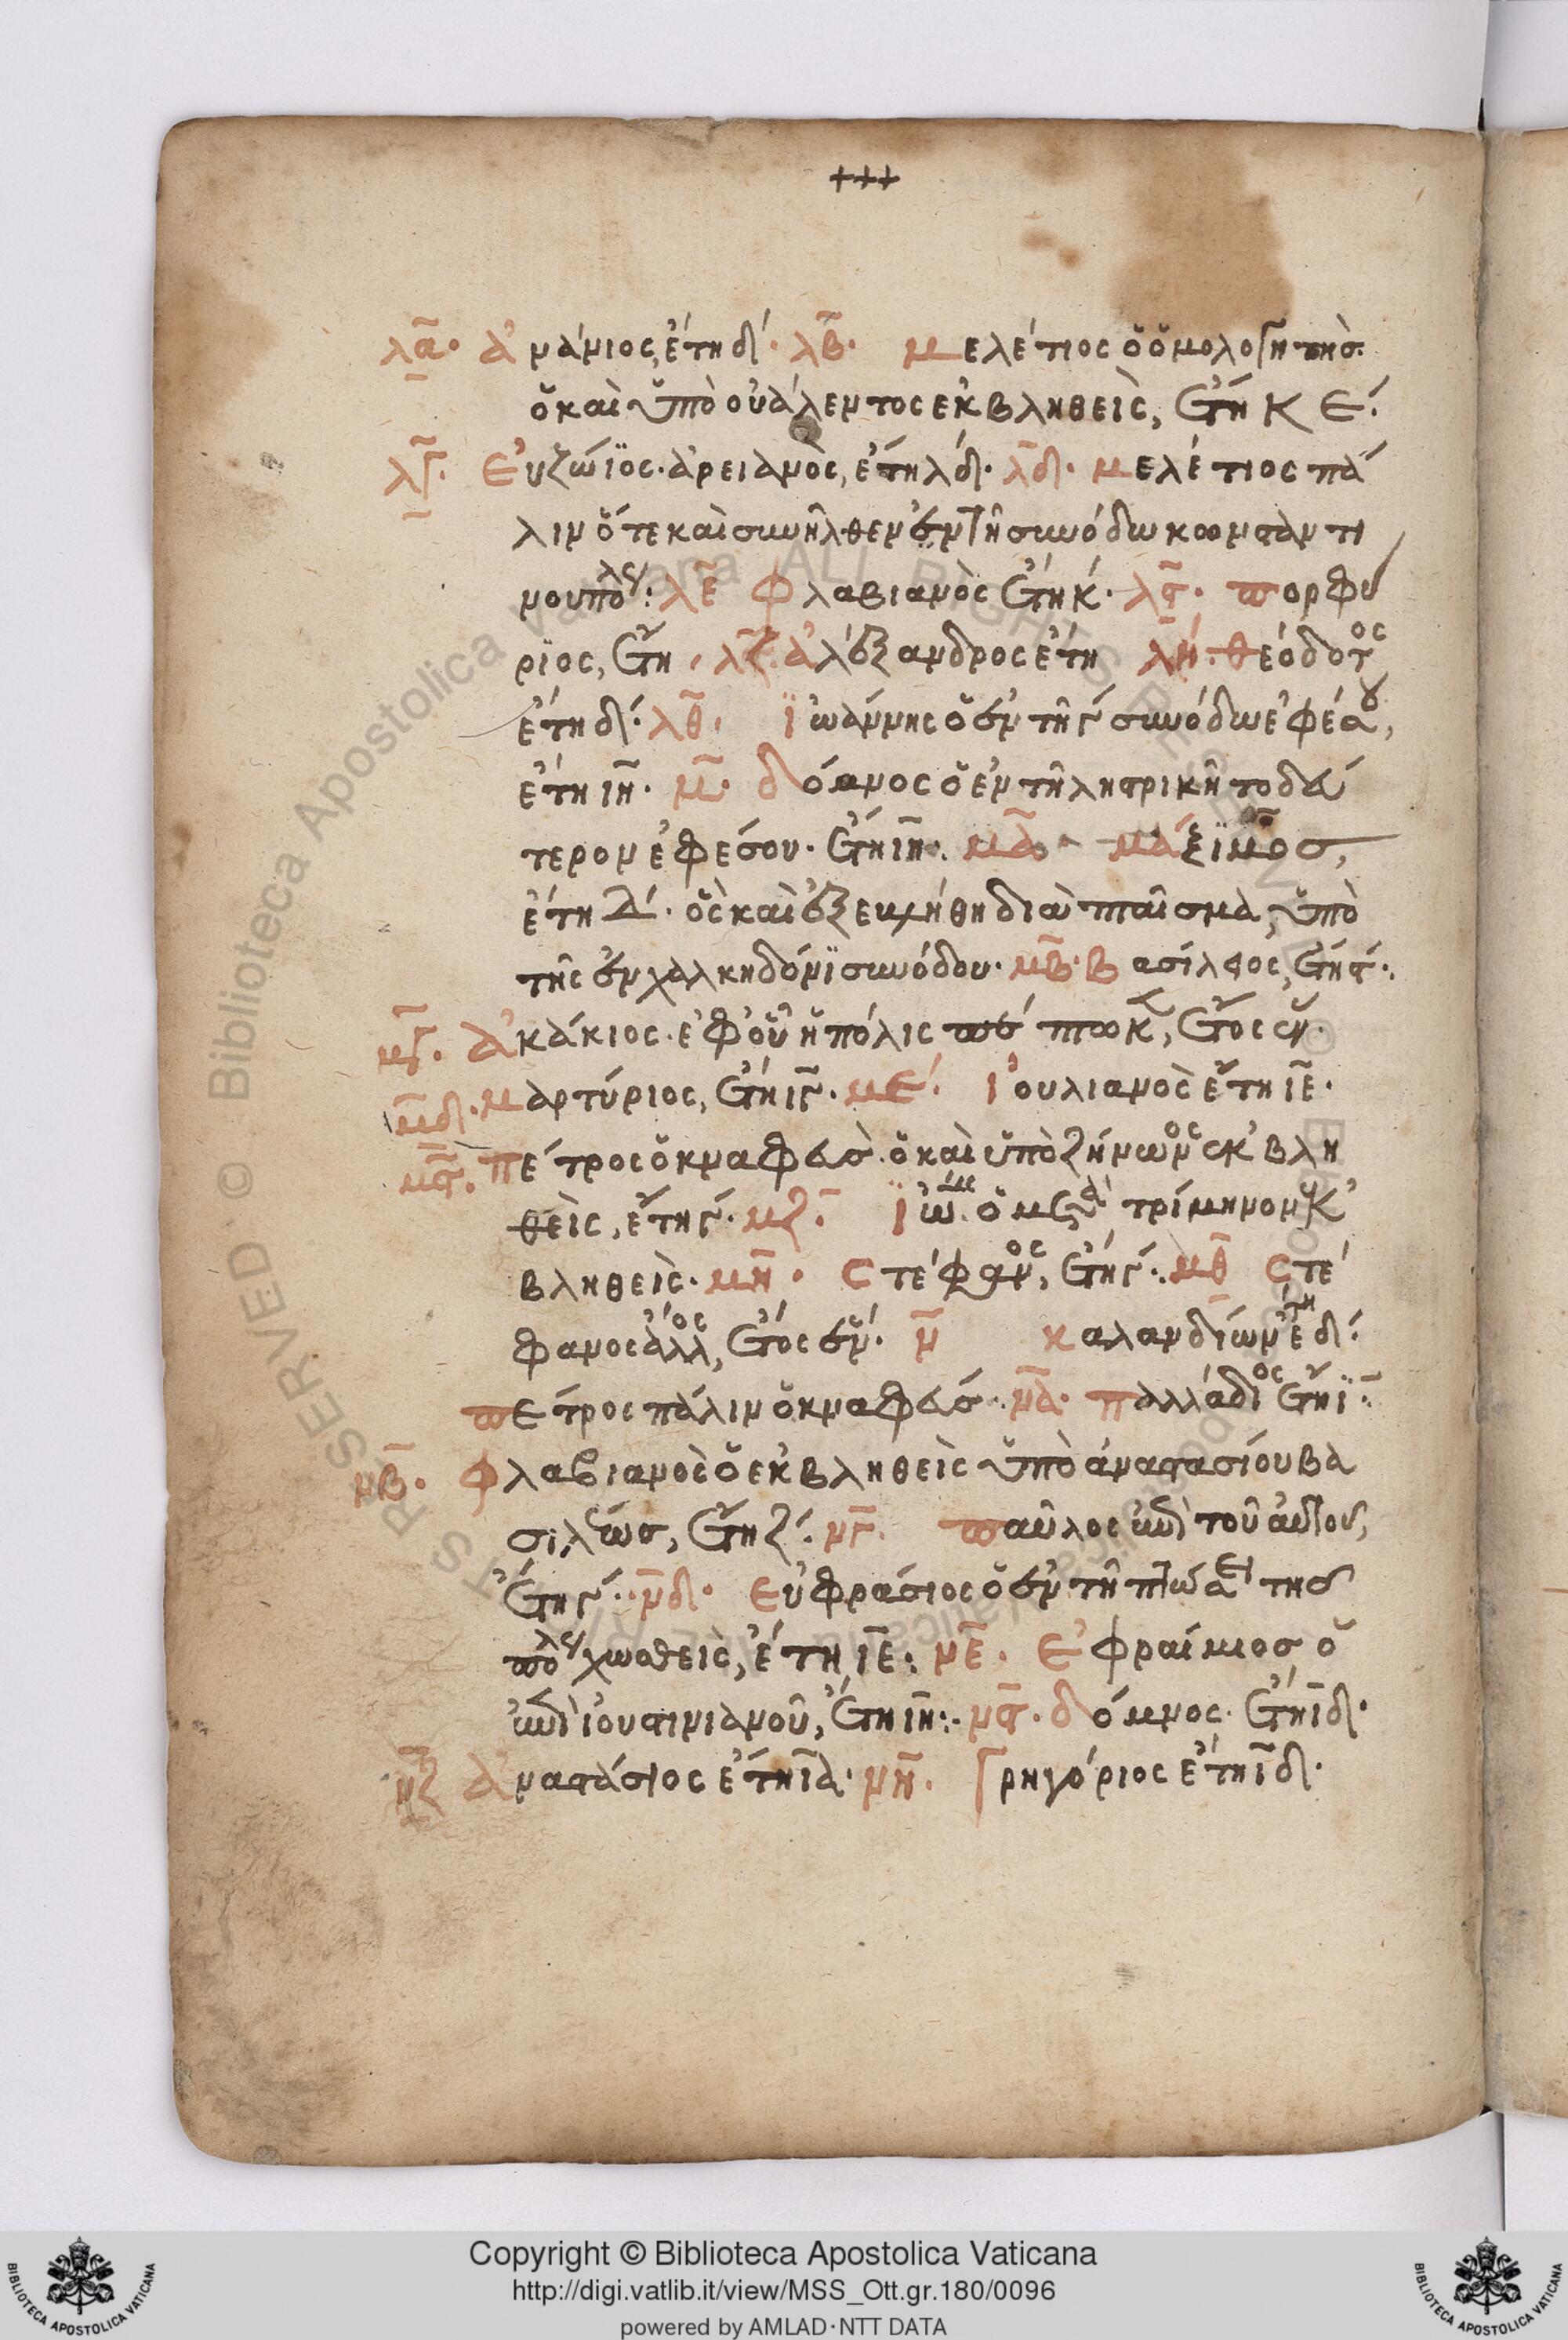 +++
λα· ἀνάνιος, ἔτη δ'· λβ· μελέτιος ὁ ὁμολογητὴσ·
ὁ καὶ ὑπὸ οὐάλεντος ἐκβληθεὶς, ἔτη κε·
λγ· Εὐζώϊος· ἀρειανὸς, ἔτη λδ· λδ· μελέτιος πά
λιν ὅτε καὶ συνῆλθεν ἐν τῆ συνόδω κωνσταντι
νουπόλεως: λε φλαβιανὸς ἔτη κ· λϛ· πορφύ
ριος, ἔτη ι λζ ἀλέξανδρος ἔτη λη· θεόδοτος
ἔτη δ· λθ· ϊωάννης ὁ ἐν τῆ γ συνόδω ἐφέσου,
ἔτη ιη· μ· δόμνος ὁ ἐν τῆ ληστρικῆ το δεύ
τερον ἐφέσου· ἔτη ιη· μα· μάξϊμοσ,
ἔτη δ· ὃς καὶ ἐξεβλήθη διὰ πταῖσμα, ὑπὸ
τῆς ἐν χαλκηδόνϊ συνόδου· μβ· βασίλειος, ἔτη ϛ·
μγ· ἀκάκιος· ἐφ' οὗ ἡ πόλις ἔτος ἕν·
μδ· μαρτύριος, ἔτη ιγ· με· ἰουλιανὸς ἔτη ιε·
μϛ· πέτρος ὁ κναφεὺσ· ὁ καὶ ὑπὸ ζήνωνος ἐκβλη
θεὶς, ἔτη γ· μζ· ϊω ὁ τρίμηνον ἐκ
βληθεὶς· μη· Στέφανος, ἔτη γ· μθ Στέ
φανος ἄλλος, ἔτος ἕν· ν καλανδίων ἔτη δ·
πέτρος πάλιν ὁ κναφεὺσ· να· παλλάδιος ἔτη ϊ·
νβ· φλαβιανὸς ὁ ἐκβληθεὶς ὑπὸ ἀναστασίου βα
σιλέωσ, ἔτη ζ· νγ· παῦλος ἐπὶ τοῦ αὐτοῦ,
ἔτη γ· νδ· εὐφράσιος ὁ ἐν τῆ πτώσει τησ
πόλεως χωσθεὶς, ἔτη ιε· νε· ἐφραίμιοσ ὁ
ἐπὶ ἰουστινιανοῦ, ἔτη ιη· νϛ· δόμνος· ἔτη ιδ·
νζ ἀναστάσιος ἔτη ια· νη· γρηγόριος ἔτη ιδ·
Copyright © Biblioteca Apostolica Vaticana
http://digi.vatlib.it/view/MSS_Ott.gr.180/0096
powered by AMLAD·NTT DATA